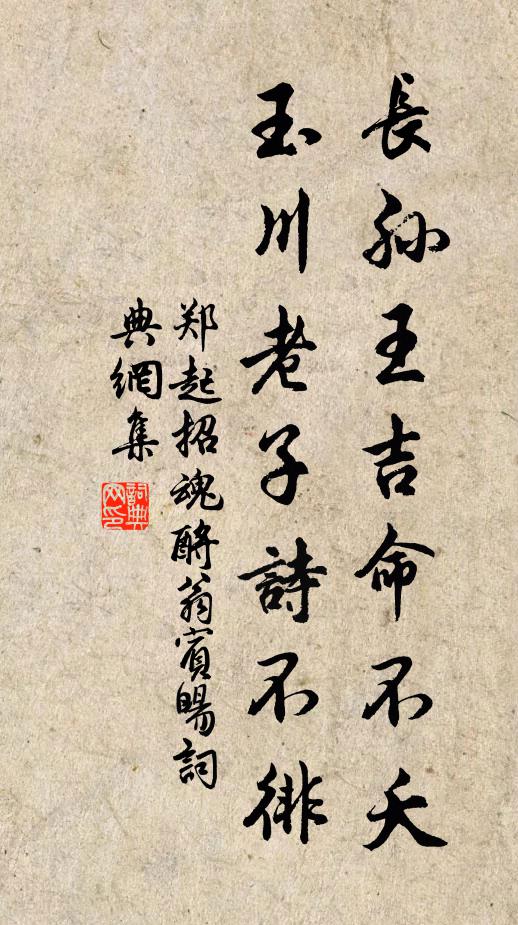 長孙王吉命不夭
玉川老子詩不徘
郑起招魂酹翁賓賜詞
典網集
詞典
网印